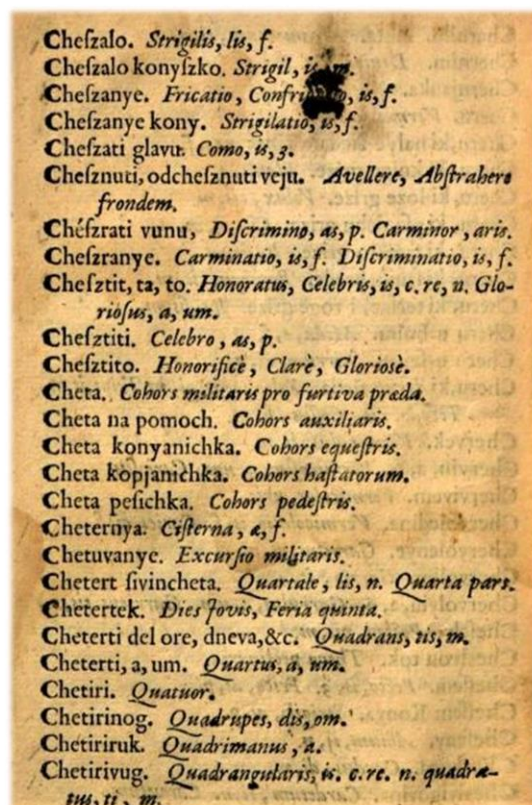 Cheſzalo. Strigilis, lis, f.
Cheſzalo konyſzko. Strigil, is, m.
Cheſzanye. Fricatio, is, f.
Cheſzanye kony. Strigilatio, is, f.
Cheſzati glavu. Como, is, 3.
Cheſznuti, odcheſznuti veju. Avellere, Abſtrahere
frondem.
Chéſzrati vunu, Diſcrimino, as, p. Carminor, aris.
Cheſzranye. Carminatio, is, f. Diſcriminatio, is, f.
Cheſztit, ta, to. Honoratus, Celebris, is, c. re, n. Glo-
rioſus, a, um.
Cheſztiti. Celebro, as, p.
Cheſztito. Honorificè, Clarè, Glorioſè.
Cheta. Cohors militaris pro furtiva præda.
Cheta na pomoch. Cohors auxiliaris.
Cheta konyanichka. Cohors equeſtris.
Cheta kopjanichka. Cohors haſtatorum.
Cheta peſichka. Cohors pedeſtris.
Cheternya. Ciſterna, æ, f.
Chetuvanye. Excurſio militaris.
Chetert ſivincheta. Quartale, lis, n. Quarta pars.
Chetertek. Dies Jovis, Feria quinta.
Cheterti del ore, dneva, &c. Quadrans, tis, m.
Cheterti, a, um. Quartus, a, um.
Chetiri. Quatuor.
Chetirinog. Quadrupes, dis, om.
Chetiriruk. Quadrimanus, a.
Chetirivug. Quadrangularis, is. c. re. n. quadra-
tus, ti, m.